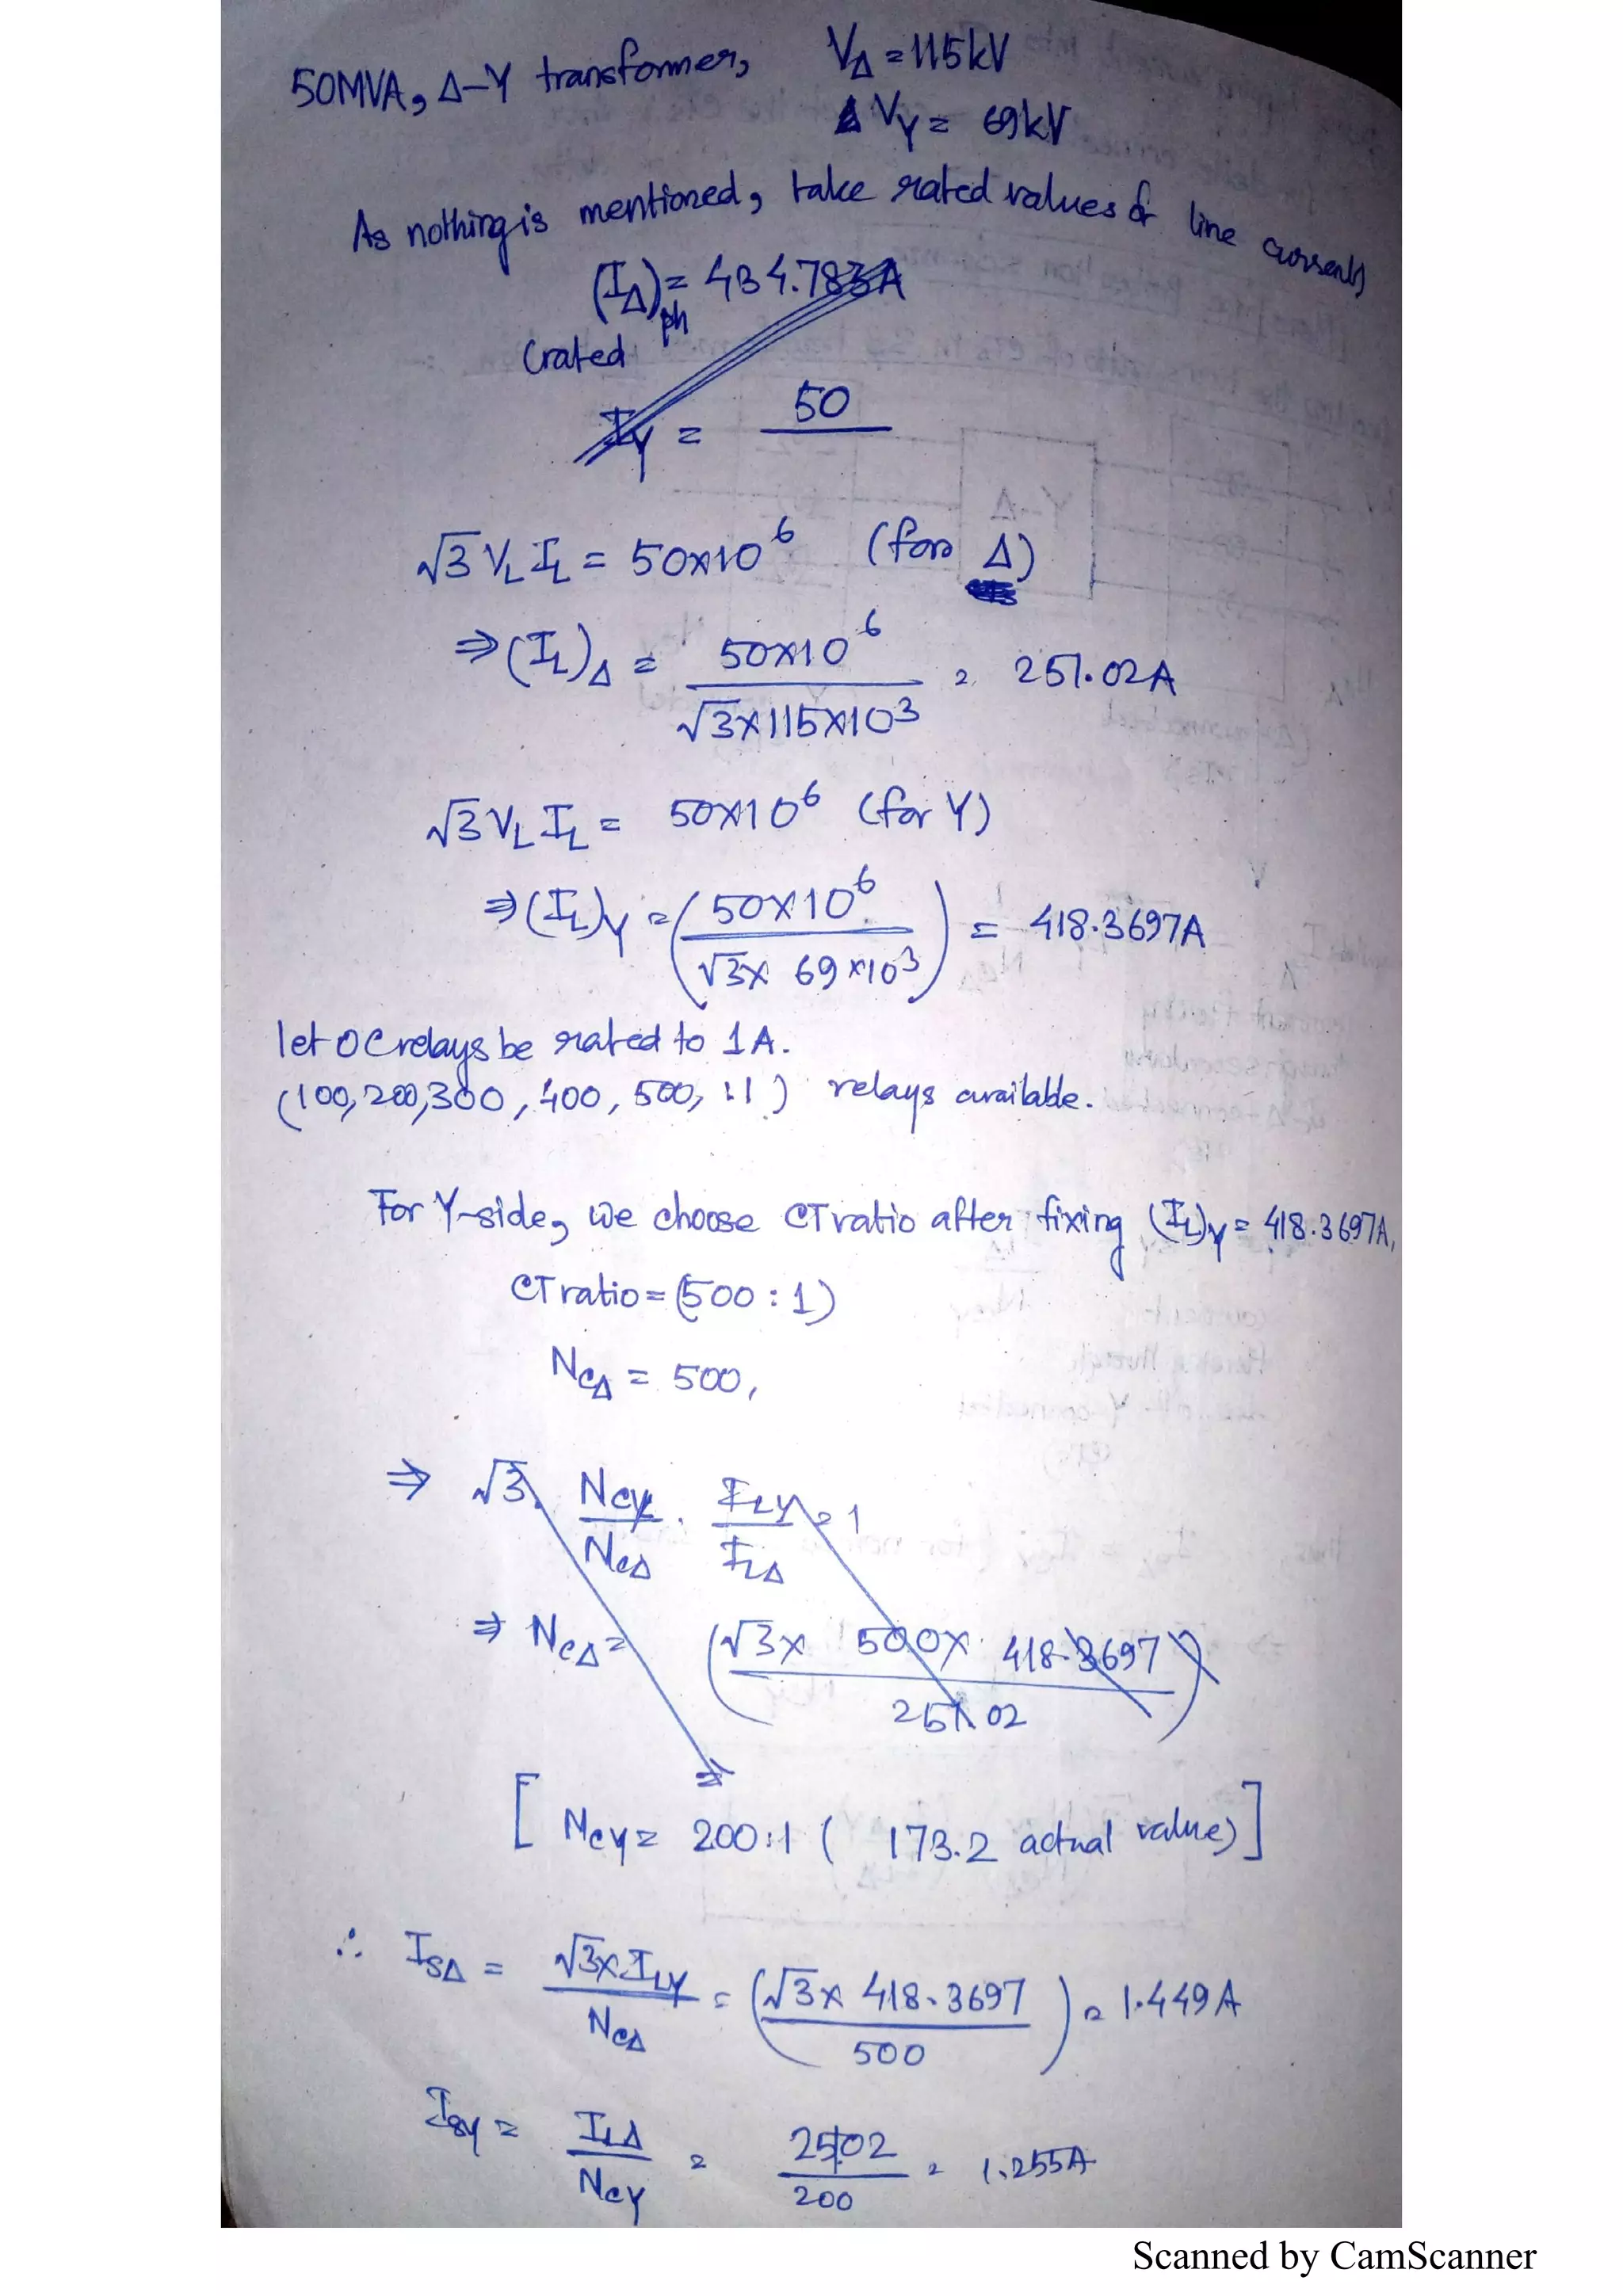 50MVA, Δ-Y transformer, VΔ = 115kV
VY = 69kV
As nothing is mentioned, take rated values of line currents
(IΔ)ph = 434.783A
(rated
IY = 50
√3 VL IL = 50x10^6 (for Δ)
⇒ (IL)Δ = 50x10^6 / √3x115x10^3 = 251.02A
√3 VL IL = 50x10^6 (for Y)
⇒ (IL)Y = (50x10^6 / √3x 69x10^3) = 418.3697A
let OC relays be rated to 1A.
(100, 200, 300, 400, 500, :1) relays available.
For Y-side, we choose CT ratio after fixing (IL)Y = 418.3697A,
CT ratio = (500 : 1)
NCΔ = 500,
⇒ √3. NCY / NCΔ . ILY / ILΔ = 1
⇒ NCΔ = (√3x 500x 418.3697 / 251.02)
⇒
[ NCY = 200:1 ( 173.2 actual value) ]
∴ ISΔ = √3xILY / NCΔ = (√3x 418.3697 / 500) = 1.449A
ISY = ILΔ / NCY = 251.02 / 200 = 1.255A
Scanned by CamScanner